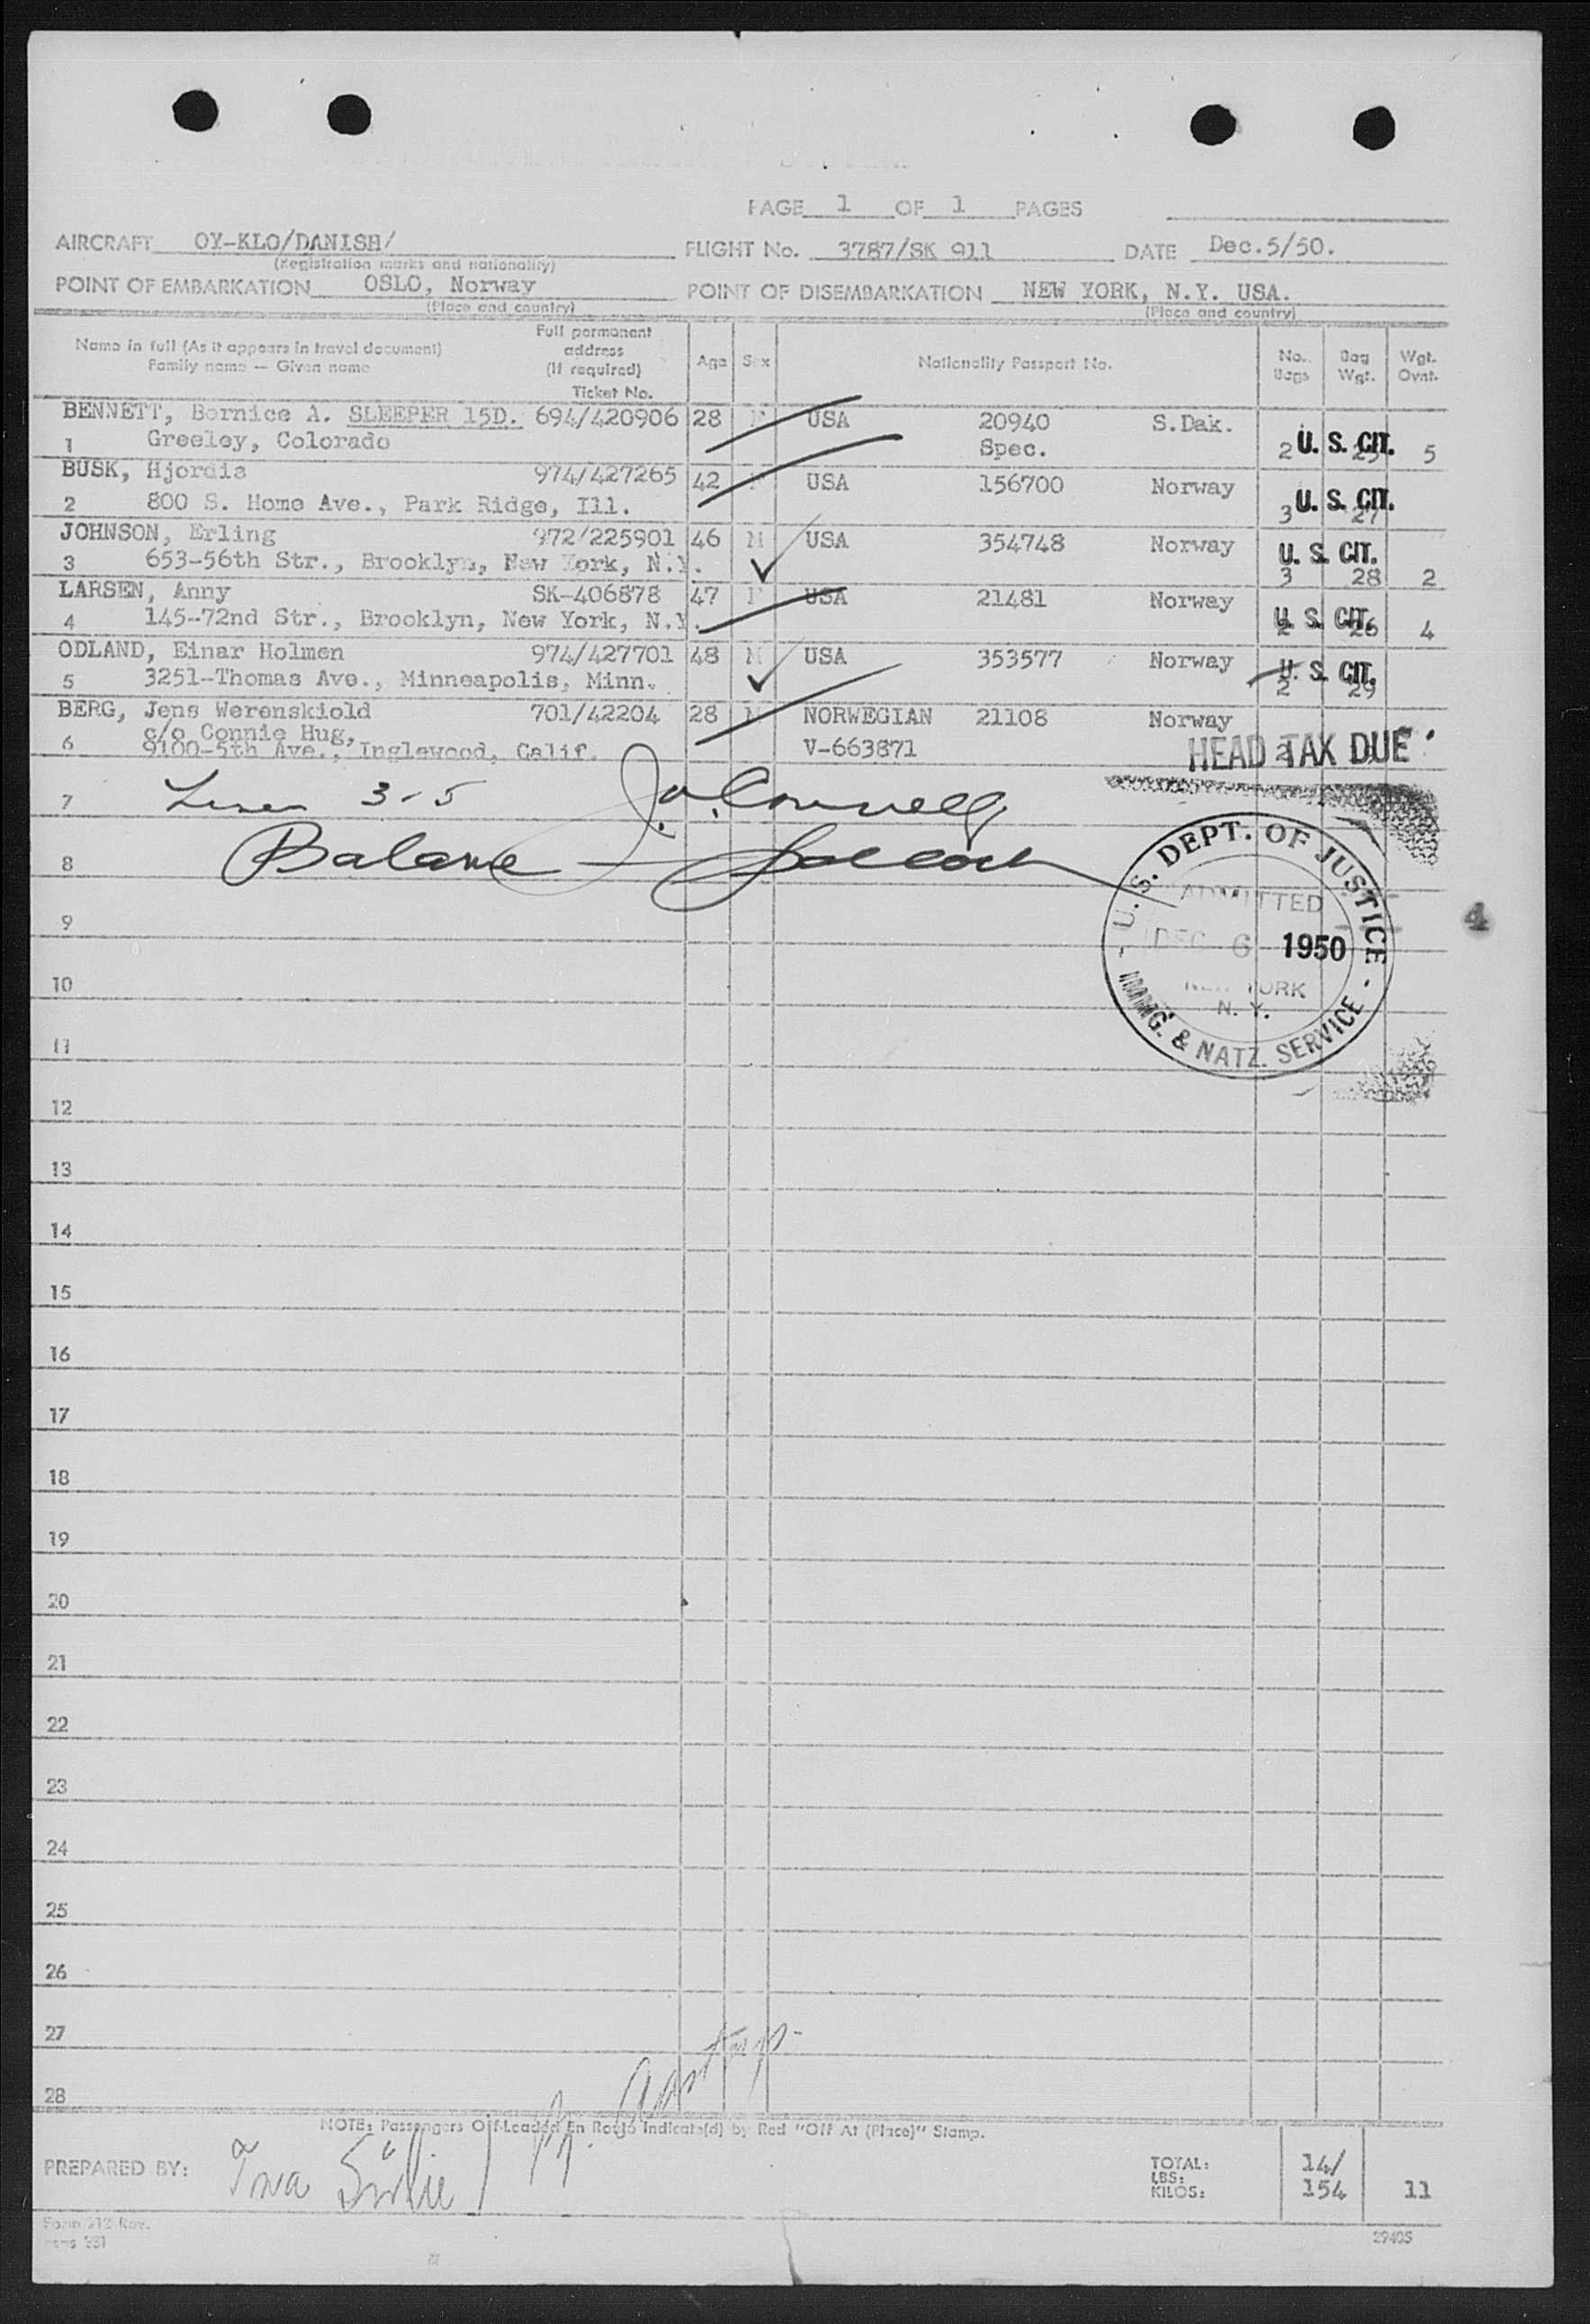 PAGE 1 OF 1 PAGES
AIRCRAFT OY-KLO/DANISH/ FLIGHT No. 3787/SK 911 DATE Dec.5/50.
(Registration marks and nationality)
POINT OF EMBARKATION OSLO, Norway POINT OF DISEMBARKATION NEW YORK, N.Y. USA.
(Place and country) (Place and country)
Name in full (As it appears in travel document) Family name — Given name Full permanent address (If required) Ticket No. Age Sex Nationality Passport No. No. Bags Bag Wgt. Wgt. Ovnt.
BENNETT, Bernice A. SLEEPER 15D. 694/420906 28 F USA 20940 S.Dak.
1 Greeley, Colorado Spec. 2 U. S. CIT. 5
BUSK, Hjordis 974/427265 42 F USA 156700 Norway
2 800 S. Home Ave., Park Ridge, Ill. 3 U. S. CIT. 27
JOHNSON, Erling 972/225901 46 M USA 354748 Norway U. S. CIT.
3 653-56th Str., Brooklyn, New York, N.Y. 3 28 2
LARSEN, Anny SK-406878 47 F USA 21481 Norway
4 145-72nd Str., Brooklyn, New York, N.Y. U. S. CIT. 2 26 4
ODLAND, Einar Holmen 974/427701 48 M USA 353577 Norway U. S. CIT.
5 3251-Thomas Ave., Minneapolis, Minn. 2 29
BERG, Jens Werenskiold 701/42204 28 M NORWEGIAN 21108 Norway
c/o Connie Hug,
6 9100-5th Ave., Inglewood, Calif. V-663871 2 HEAD TAX DUE
7 Lines 3-5 J. O'Connell
8 Balance
U. S. DEPT. OF JUSTICE
ADMITTED
DEC 6 1950
NEW YORK
N. Y.
IMMG. & NATZ. SERVICE
4
9
10
11
12
13
14
15
16
17
18
19
20
21
22
23
24
25
26
27
28
NOTE: Passengers Off-Loaded En Route Indicate(d) by Red "Off At (Place)" Stamp.
PREPARED BY:
TOTAL: 14/
LBS:
KILOS: 154 11
Form 212 Rev.
29405